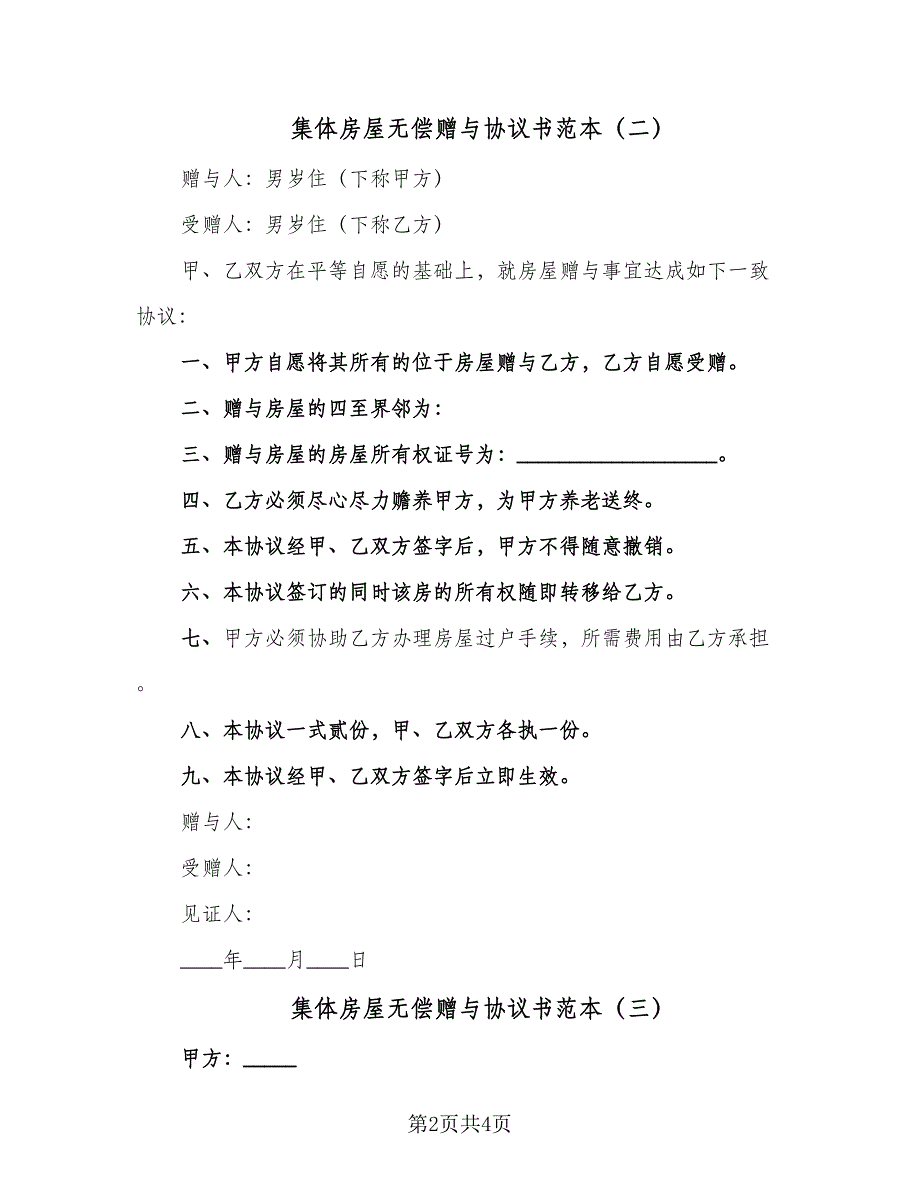 集体房屋无偿赠与协议书范本（二）
赠与人：男岁住（下称甲方）
受赠人：男岁住（下称乙方）
甲、乙双方在平等自愿的基础上，就房屋赠与事宜达成如下一致
协议：
一、甲方自愿将其所有的位于房屋赠与乙方，乙方自愿受赠。
二、赠与房屋的四至界邻为：
三、赠与房屋的房屋所有权证号为：___________________。
四、乙方必须尽心尽力赡养甲方，为甲方养老送终。
五、本协议经甲、乙双方签字后，甲方不得随意撤销。
六、本协议签订的同时该房的所有权随即转移给乙方。
七、甲方必须协助乙方办理房屋过户手续，所需费用由乙方承担
。
八、本协议一式贰份，甲、乙双方各执一份。
九、本协议经甲、乙双方签字后立即生效。
赠与人：
受赠人：
见证人：
____年____月____日
集体房屋无偿赠与协议书范本（三）
甲方：_____
第2页共4页